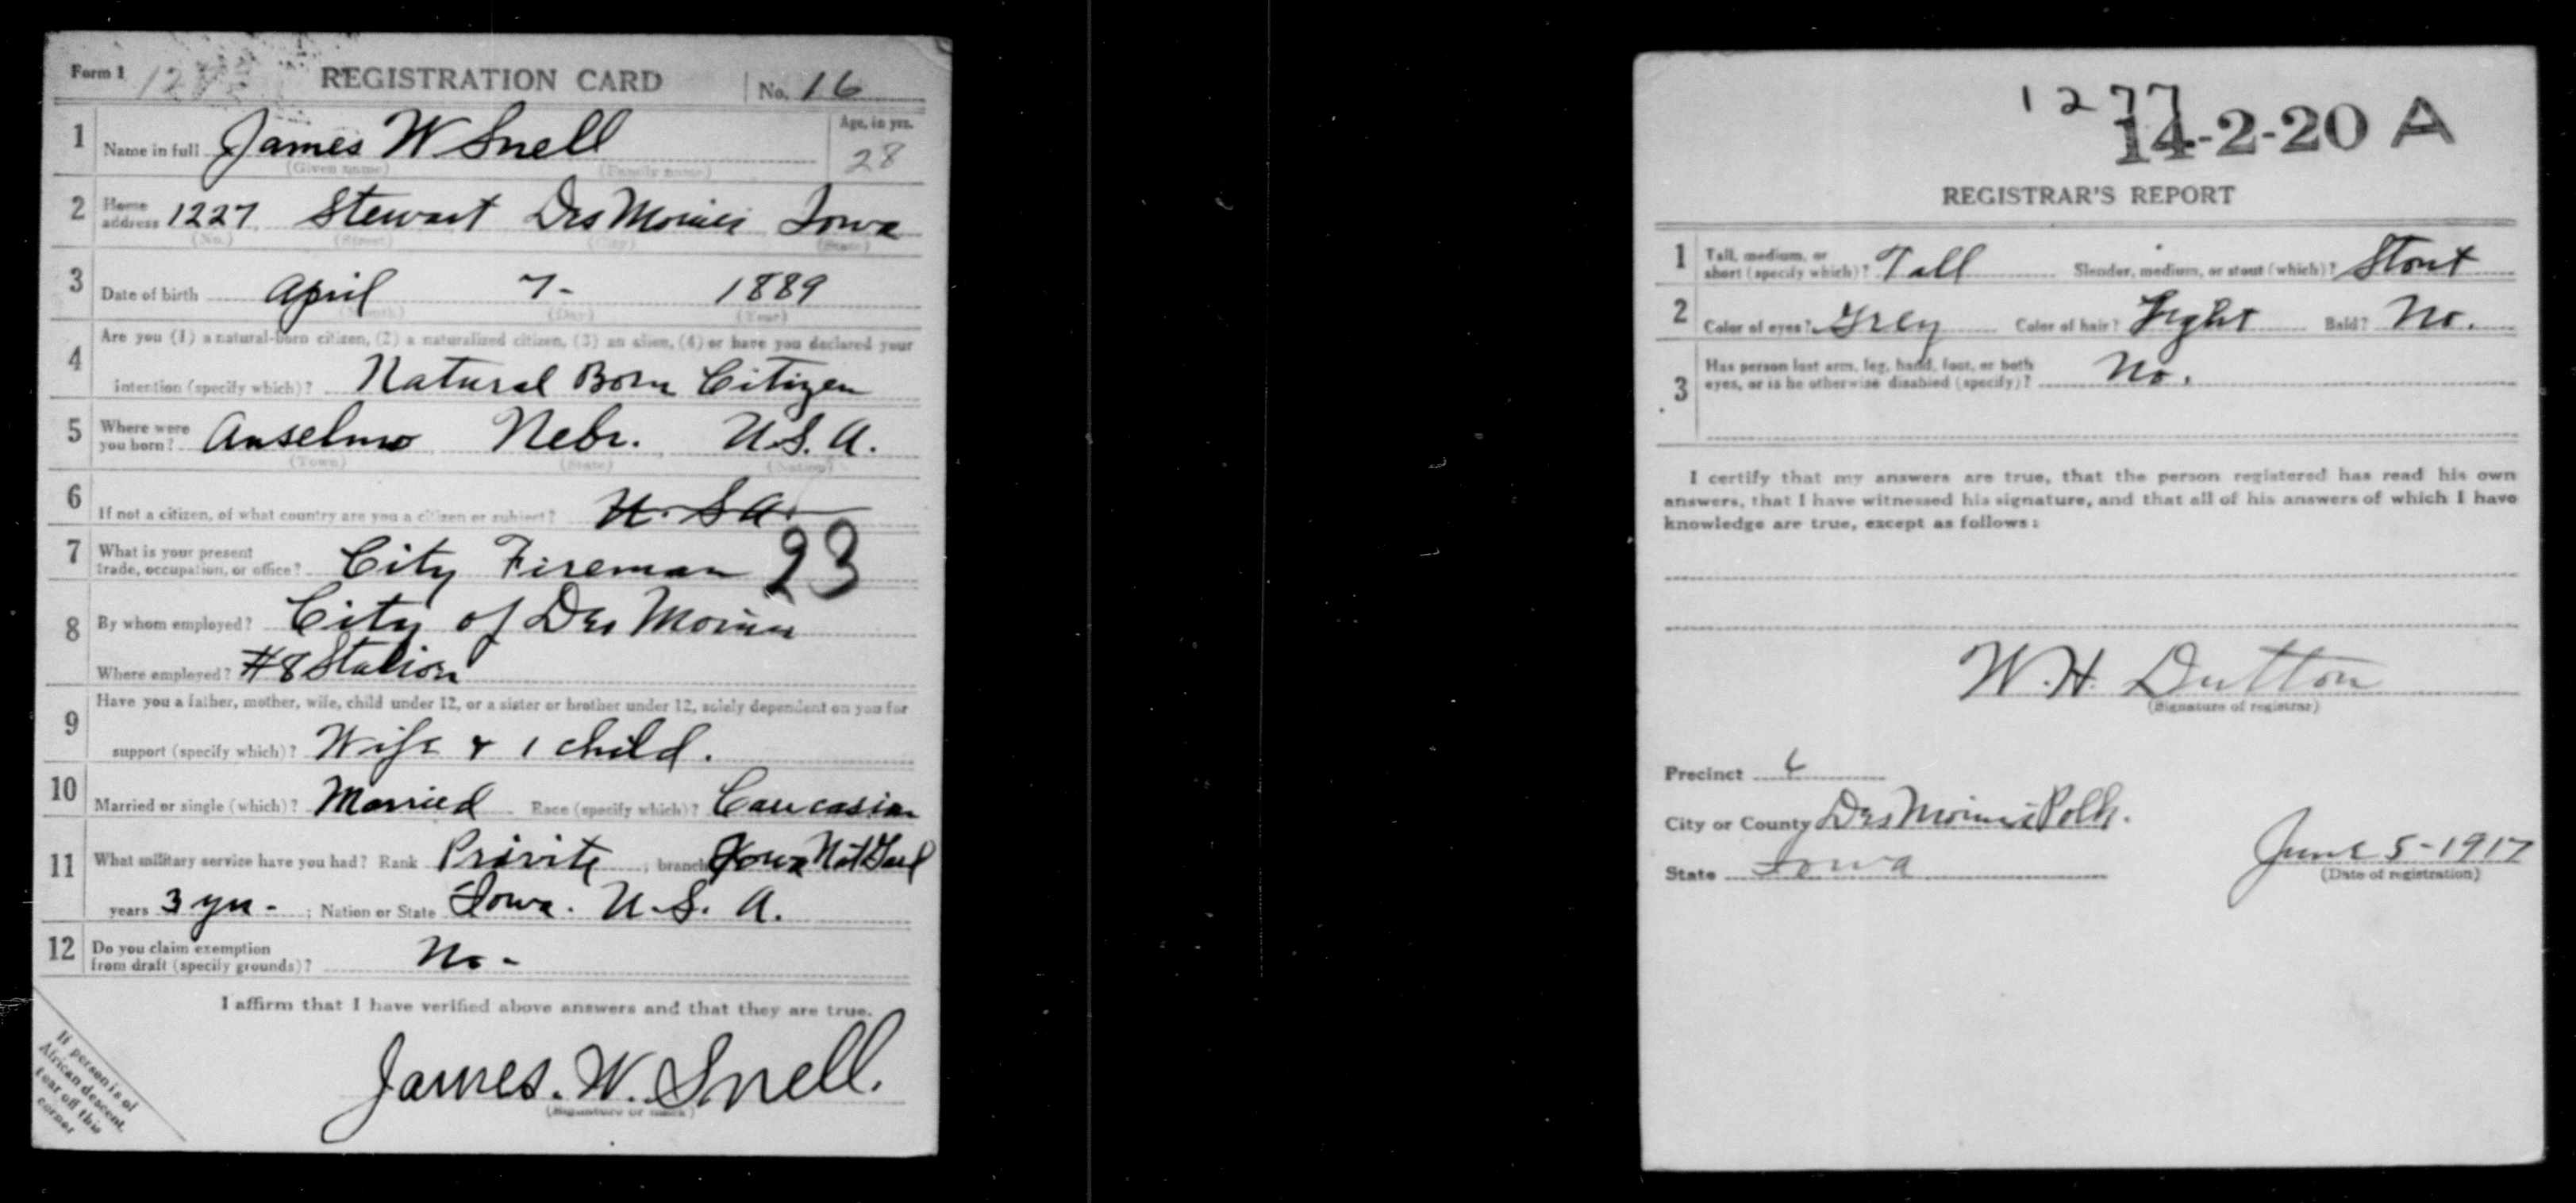 Form 1 REGISTRATION CARD No. 16
1 Name in full James W Snell Age, in yrs. 28
(Given name) (Family name)
2 Home address 1227 Stewart Des Moines Iowa
(No.) (Street) (City) (State)
3 Date of birth April 7- 1889
(Month) (Day) (Year)
4 Are you (1) a natural-born citizen, (2) a naturalized citizen, (3) an alien, (4) or have you declared your
intention (specify which)? Natural Born Citizen
5 Where were you born? Anselmo Nebr. U.S.A.
(Town) (State) (Nation)
6 If not a citizen, of what country are you a citizen or subject? U.S.A.
7 What is your present trade, occupation, or office? City Fireman 23
8 By whom employed? City of Des Moines
Where employed? #8 Station
9 Have you a father, mother, wife, child under 12, or a sister or brother under 12, solely dependent on you for
support (specify which)? Wife & 1 child.
10 Married or single (which)? Married Race (specify which)? Caucasian
11 What military service have you had? Rank Privite ; branch Iowa Nat Gard
years 3 yrs - ; Nation or State Iowa. U.S.A.
12 Do you claim exemption from draft (specify grounds)? No -
I affirm that I have verified above answers and that they are true.
James. W. Snell.
(Signature or mark)
If person is of
African descent,
tear off this
corner
1277
14-2-20 A
REGISTRAR'S REPORT
1 Tall, medium, or short (specify which)? Tall Slender, medium, or stout (which)? Stout
2 Color of eyes? Grey Color of hair? Light Bald? No.
3 Has person lost arm, leg, hand, foot, or both
eyes, or is he otherwise disabled (specify)? No.
I certify that my answers are true, that the person registered has read his own
answers, that I have witnessed his signature, and that all of his answers of which I have
knowledge are true, except as follows:
W. H. Dutton
(Signature of registrar)
Precinct 6
City or County Des Moines Polk.
State Iowa
June 5-1917
(Date of registration)